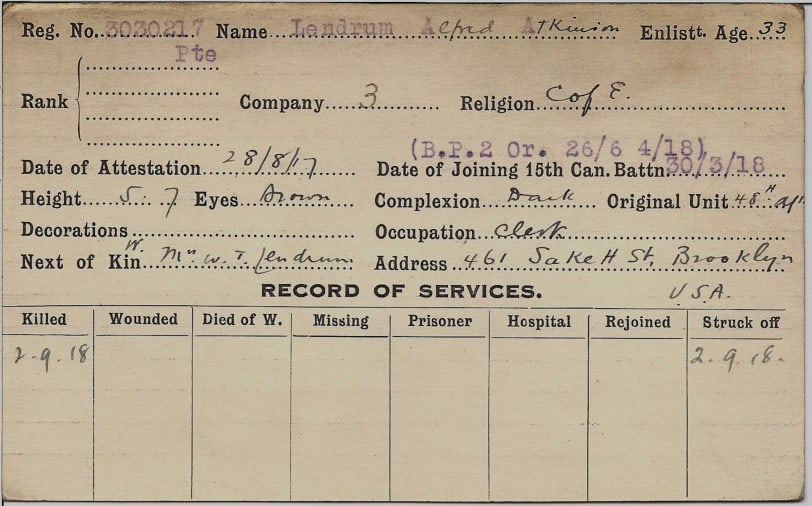 Reg. No. 3030217 Name Lendrum Alfred Atkinson Enlistt. Age 33
Pte
Rank Company 3 Religion C of E.
(B.P.2 Or. 26/6 4/18)
Date of Attestation 28/8/17 Date of Joining 15th Can. Battn. 30/3/18
Height 5. 7 Eyes Brown Complexion Dark Original Unit 48th
Decorations Occupation Clerk
W.
Next of Kin Mrs W. T. Lendrum Address 461 St. Brooklyn
RECORD OF SERVICES. U.S.A.
Killed Wounded Died of W. Missing Prisoner Hospital Rejoined Struck off
2-9.18 2-9.18-